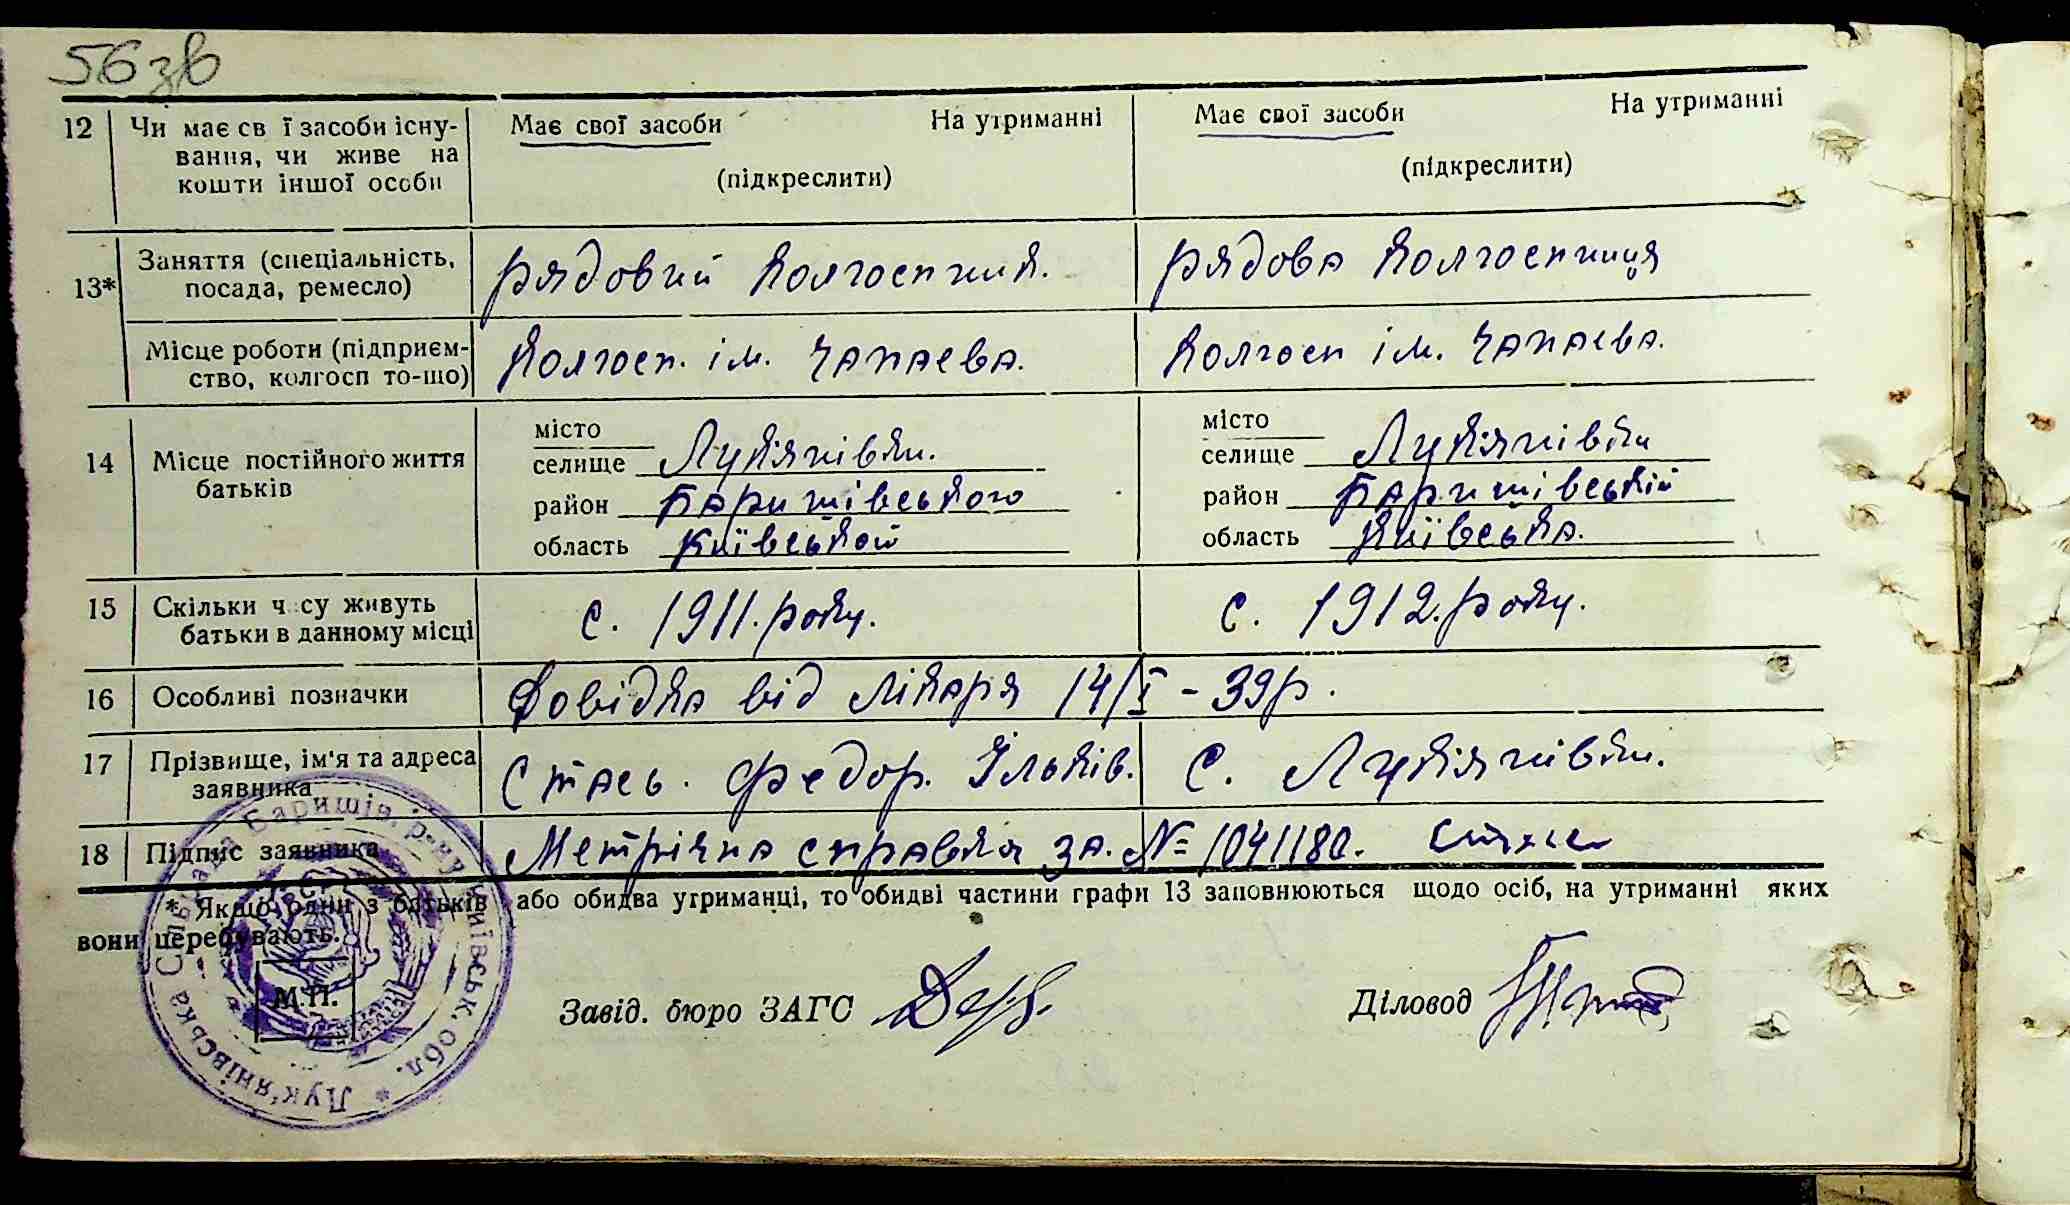 56 зв
12 Чи має св ї засоби існу- Має свої засоби На утриманні Має свої засоби На утриманні
вання, чи живе на
кошти іншої особи (підкреслити) (підкреслити)
13* Заняття (спеціальність, рядовий колгоспник. рядова колгоспниця
посада, ремесло)
Місце роботи (підприєм- Колгосп. ім. Чапаєва. Колгосп ім. Чапаєва.
ство, колгосп то-що)
14 Місце постійного життя місто місто
батьків селище Лукіянівки. селище Лукіянівки
район Баришівського район Баришівській
область Київській область Київська.
15 Скільки ч су живуть с. 1911. року. с. 1912. року.
батьки в данному місці
16 Особливі позначки Довідка від лікаря 14/I - 39р.
17 Прізвище, ім'я та адреса Стась. Федор. Ільків. С. Лукіянівки.
заявника
18 Підпис заявника Метрічна справка за. № 1041180. Стась
* Якщо один з батьків або обидва утриманці, то обидві частини графи 13 заповнюються щодо осіб, на утриманні яких
вони перебувають.
М.П.
Завід. бюро ЗАГС Діловод
Лук'янівська Сільрада Баришів. р-ну Київськ. обл.